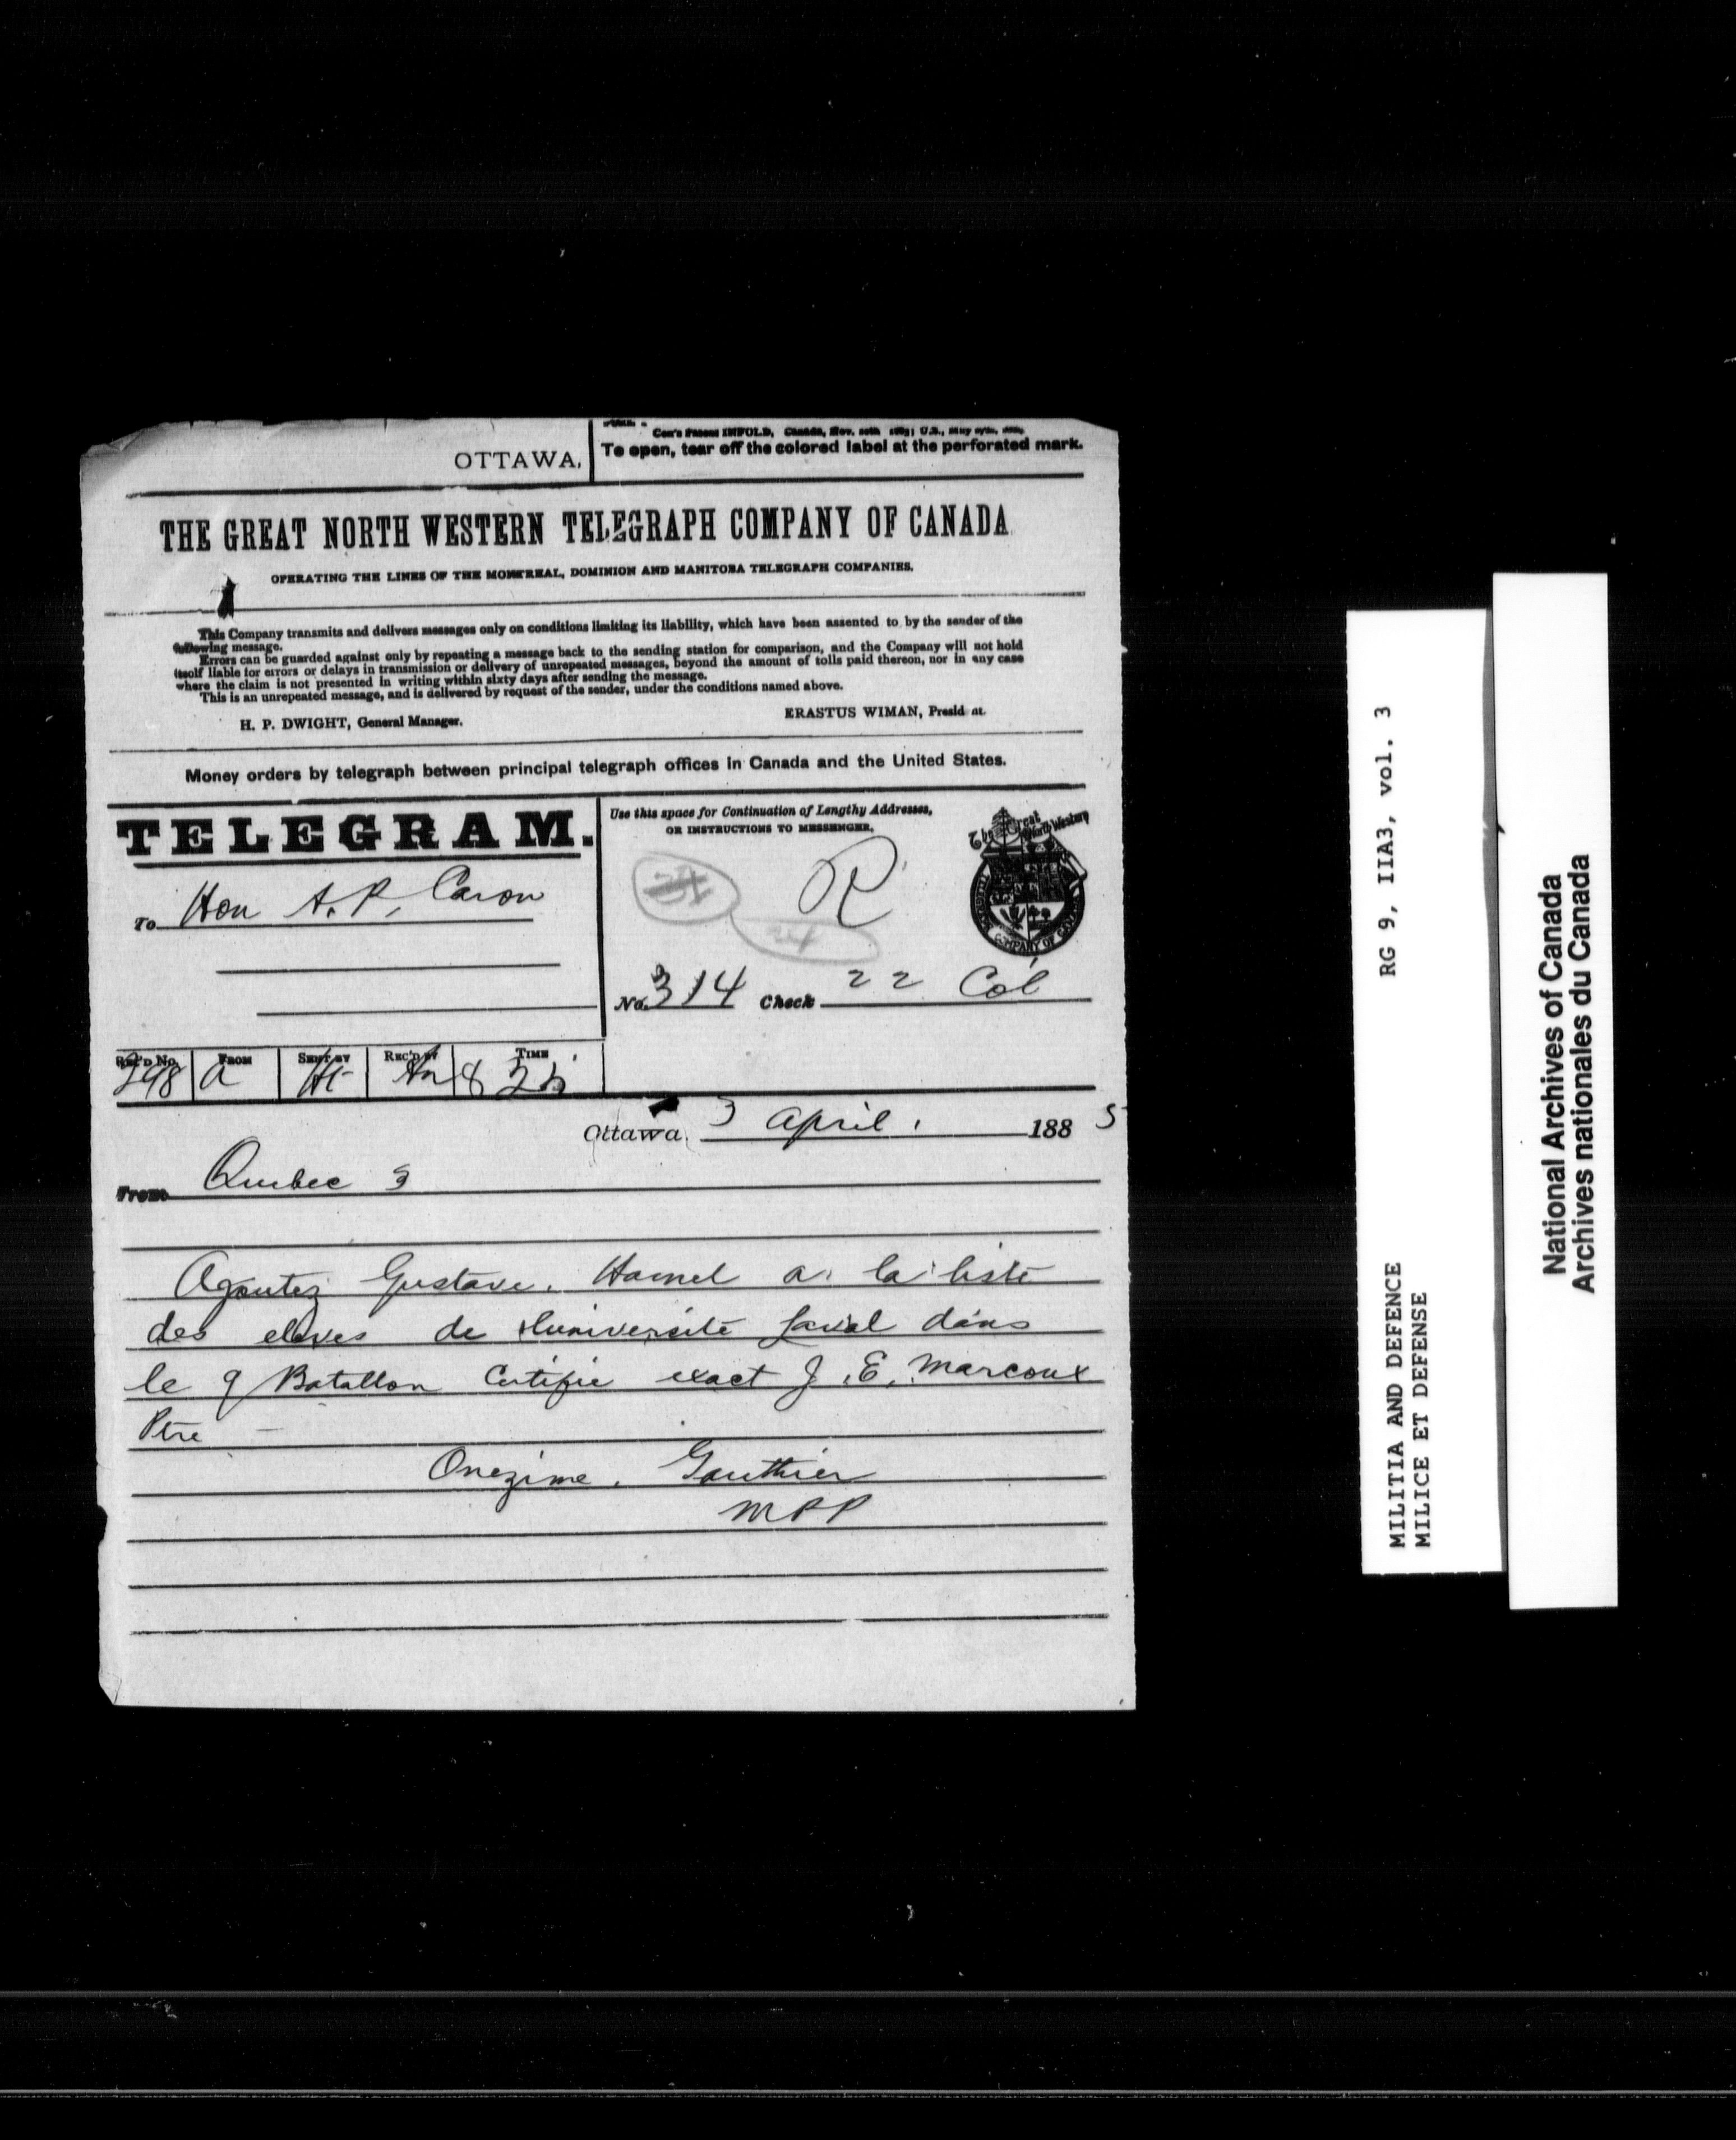 OTTAWA.
Cox's Patent INFOLD, Canada, Nov.
To open, tear off the colored label at the perforated mark.
THE GREAT NORTH WESTERN TELEGRAPH COMPANY OF CANADA
OPERATING THE LINES OF THE MONTREAL, DOMINION AND MANITOBA TELEGRAPH COMPANIES.
This Company transmits and delivers messages only on conditions limiting its liability, which have been assented to by the sender of the
following message.
Errors can be guarded against only by repeating a message back to the sending station for comparison, and the Company will not hold
itself liable for errors or delays in transmission or delivery of unrepeated messages, beyond the amount of tolls paid thereon, nor in any case
where the claim is not presented in writing within sixty days after sending the message.
This is an unrepeated message, and is delivered by request of the sender, under the conditions named above.
H. P. DWIGHT, General Manager.
ERASTUS WIMAN, Presid nt.
Money orders by telegraph between principal telegraph offices in Canada and the United States.
TELEGRAM.
To Hon A. P. Caron
Use this space for Continuation of Lengthy Addresses,
OR INSTRUCTIONS TO MESSENGER.
R
The Great North Western
TELEGRAPH COMPANY OF CANADA
No. 314 Check 22 Col
REC'D No. FROM SENT BY REC'D BY TIME
298 a 8
Ottawa, 3 April. 1885
From Quebec 3
Agoutez Gustave. Hamel a la liste
des eleves de luniversite Laval dans
le 9 Batallon Certifie exact J. E. Marcoux
Ptre -
Onezime. Gauthier
MPP
RG 9, IIA3, vol. 3
MILITIA AND DEFENCE
MILICE ET DEFENSE
National Archives of Canada
Archives nationales du Canada